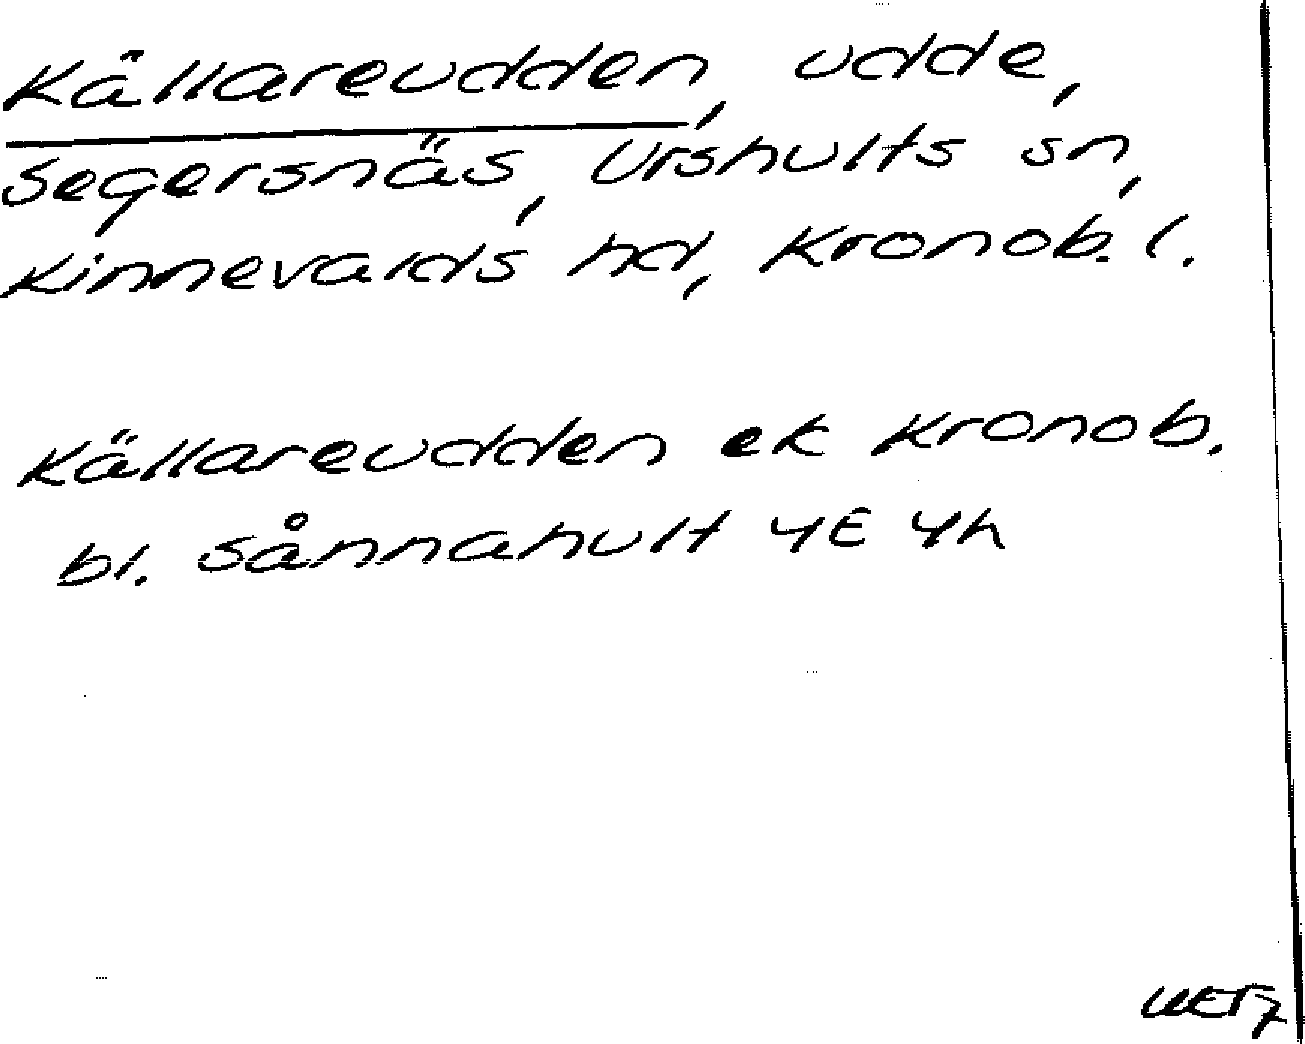 Källareudden, udde,
Segersnäs, Urshults sn,
Kinnevalds hd, Kronob. l.
Källareudden ek Kronob.
bl. Sånnahult 4E 4h